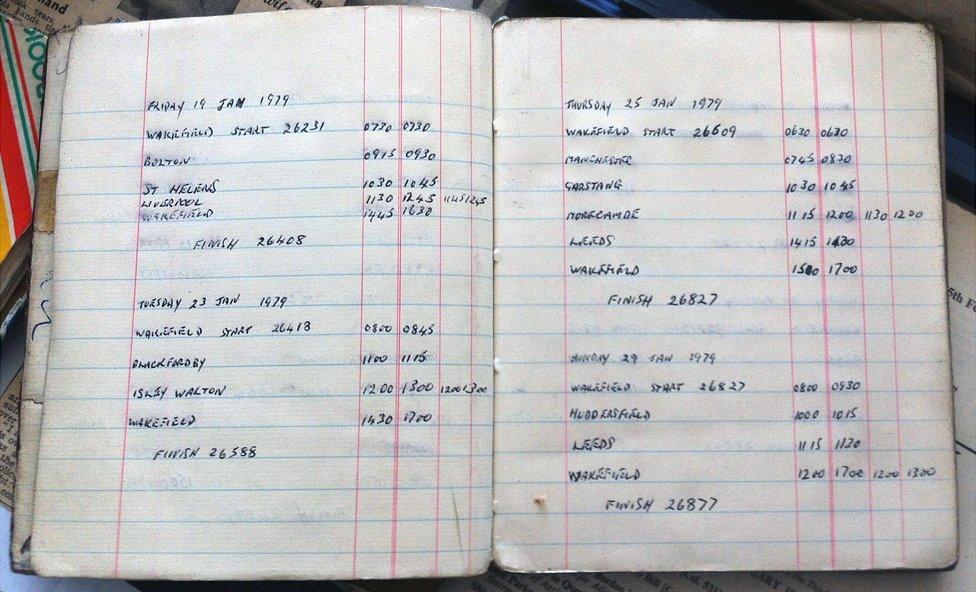 FRIDAY 19 JAN 1979
WAKEFIELD START 26231 0730 0730
BOLTON 0915 0930
ST HELENS 1030 1045
LIVERPOOL 1130 1245 1145 1245
WAKEFIELD 1445 1630
FINISH 26408
TUESDAY 23 JAN 1979
WAKEFIELD START 26413 0800 0845
BLACKFORDBY 1100 1115
ISLEY WALTON 1200 1300 1200 1300
WAKEFIELD 1430 1700
FINISH 26588
THURSDAY 25 JAN 1979
WAKEFIELD START 26609 0630 0630
MANCHESTER 0745 0830
GARSTANG 1030 1045
MORECAMBE 1115 1200 1130 1200
LEEDS 1415 1430
WAKEFIELD 1500 1700
FINISH 26827
MONDAY 29 JAN 1979
WAKEFIELD START 26827 0800 0930
HUDDERSFIELD 1000 1015
LEEDS 1115 1120
WAKEFIELD 1200 1700 1200 1300
FINISH 26877